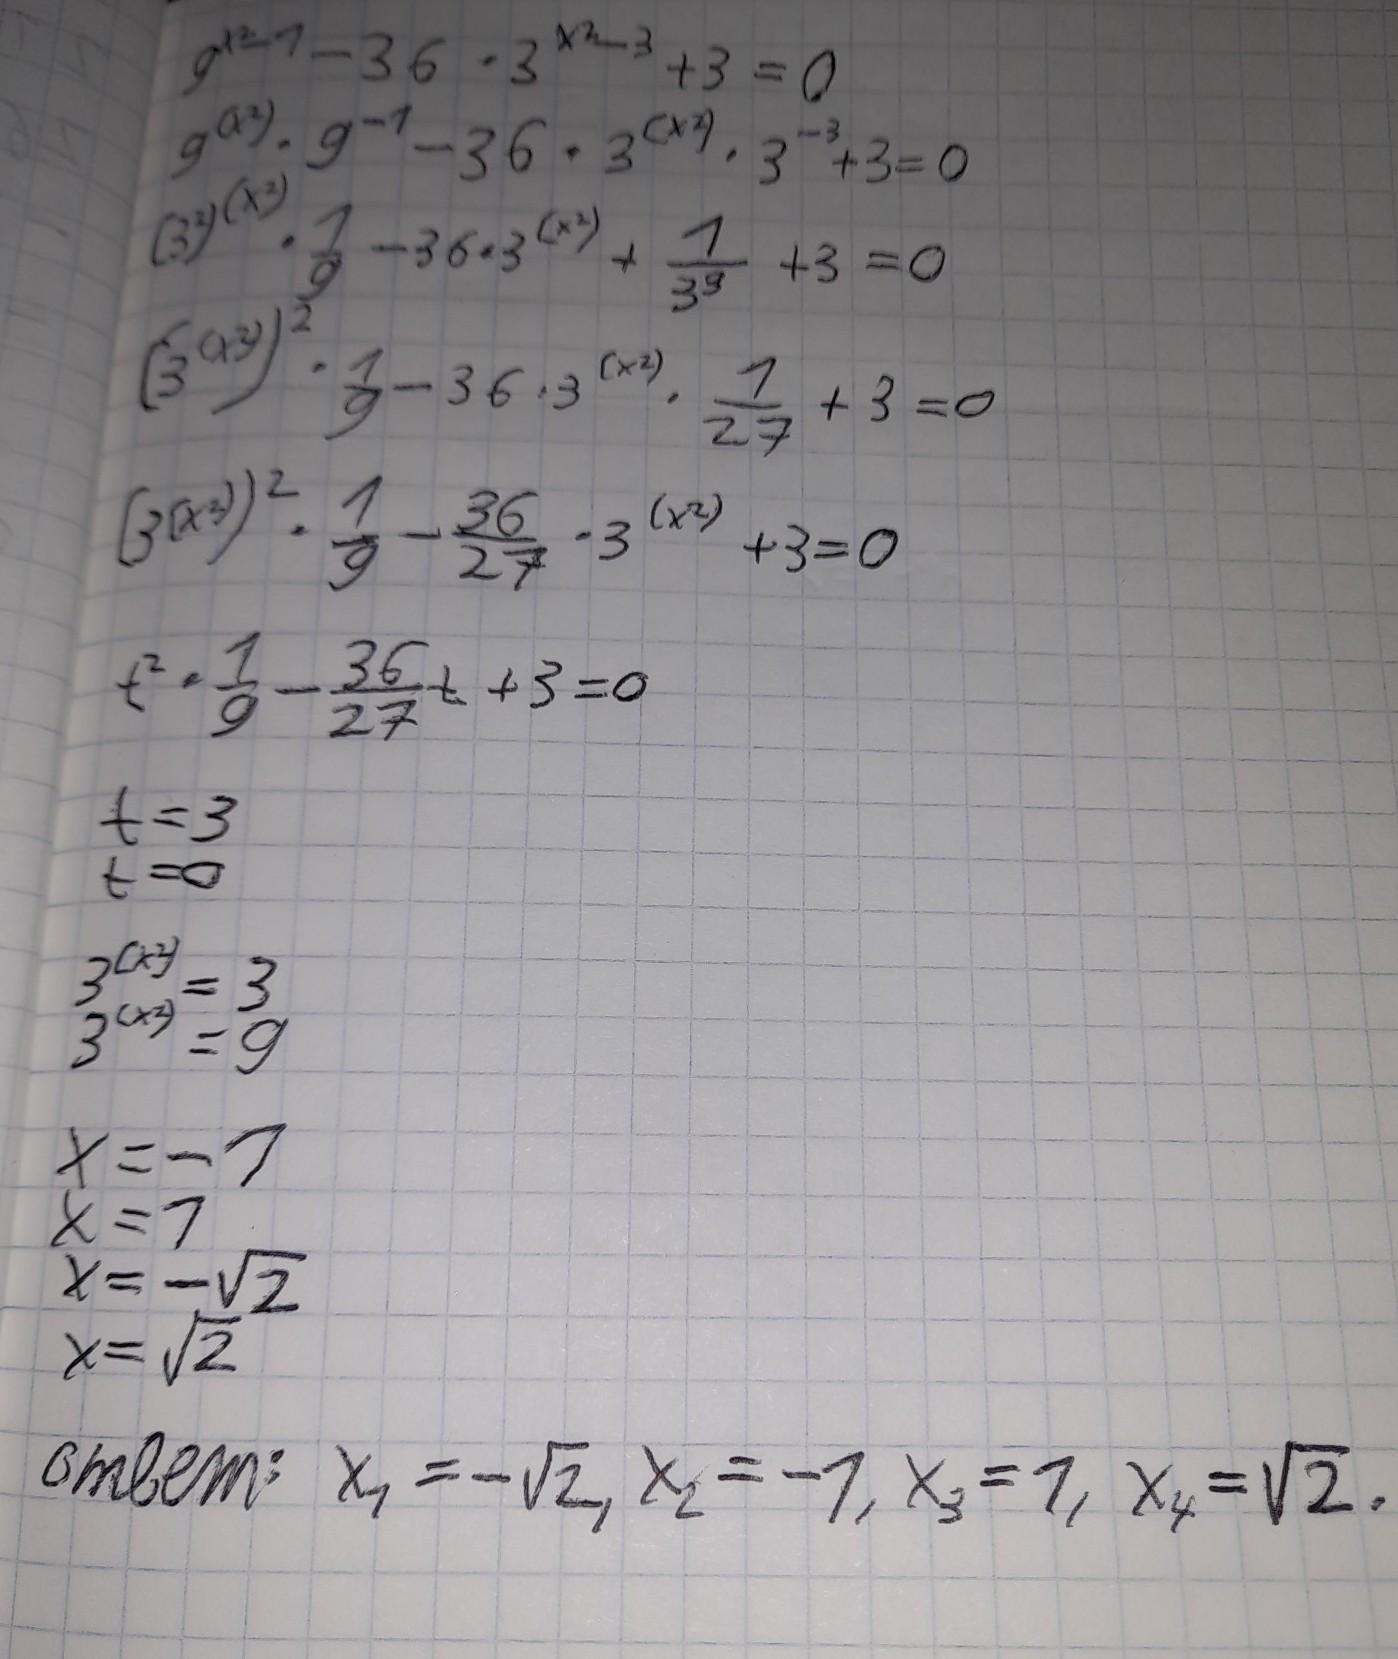 9^{x²-1} - 36 · 3^{x²-3} + 3 = 0
9^{(x²)} · 9^{-1} - 36 · 3^{(x²)} · 3^{-3} + 3 = 0
(3²)^{(x²)} · 1/9 - 36 · 3^{(x²)} + 1/3⁹ + 3 = 0
(3^{(x²)})² · 1/9 - 36 · 3^{(x²)} · 1/27 + 3 = 0
(3^{(x²)})² · 1/9 - 36/27 · 3^{(x²)} + 3 = 0
t² · 1/9 - 36/27 t + 3 = 0
t = 3
t = 0
3^{(x²)} = 3
3^{(x²)} = 9
x = -1
x = 1
x = -√2
x = √2
ответ: x₁ = -√2, x₂ = -1, x₃ = 1, x₄ = √2.